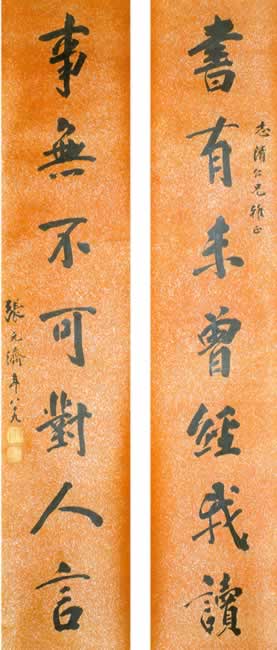 志清仁兄雅正
書有未曾經我讀
事無不可對人言
張元濟年八九